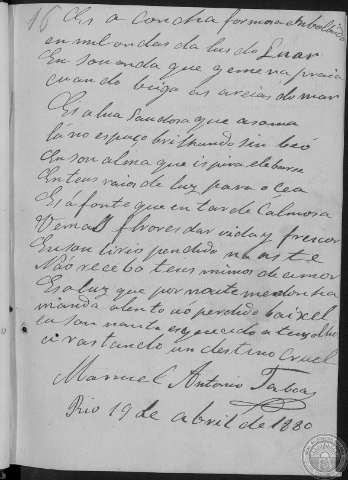 16
Es a concha formosa embalada
en mil ondas da luz do Luar
Eu sou onda que geme na praia
cuando beija as areias do mar
Es a lua Saudosa que asoma
lá no espaço brilhando sin
Eu sou alma que
En teus raios de luz para o cea
Es a fonte que en tarde Calmosa
Vem as flores dar vida y frescor
Eu sou lirio pendido na aste
Não recebo teus mimos de amor
Es a luz que por noute medonha
manda alento aó perdido baixel
eu sou nauta esquecido a
a rastando un destino Cruel
Manuel Antonio Taboas
Rio 19 de abril de 1880